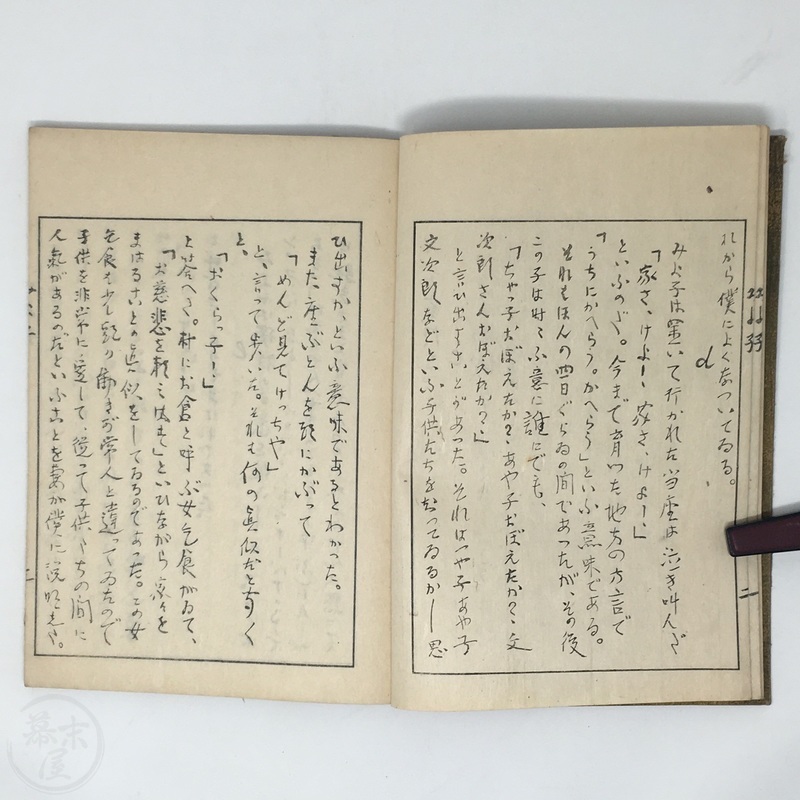 れから僕によくなついてゐる。
みよ子は置いて行かれた当座は泣き叫んだ
「家さ、けよー 家さ、けよー」
といふのだ。今まで育つた地方の方言で
「うちにかへらう。かへらう」といふ意味である。
それもほんの四日ぐらゐの間であつたが、その後
この子は時々不意に誰にでも、
「ちやつ子おぼえたか？あや子おぼえたか？文
次郎さんおぼえたか？」
と言ひ出すことがあつた。それはつや子あや子
文次郎などといふ子供たちを知つてゐるかし思
ひ出すか、といふ意味であるとわかつた。
また座ぶとんを頭にかぶつて
「めんど見てけつちや」
と、言つて歩いた。それも何の真似だと聞く
と、
「おくらつ子ー」
と答へる。村にお倉と呼ぶ女乞食がゐて、
「お慈悲を頼みます」といひながら家々を
まはることの真似をしてゐるのであつた。この女
乞食も少し頭の働きが常人と違つてゐたので
子供を非常に愛して、従つて子供たちの間に
人気があるのだといふことを妻が僕に説明した。
二
幕末屋